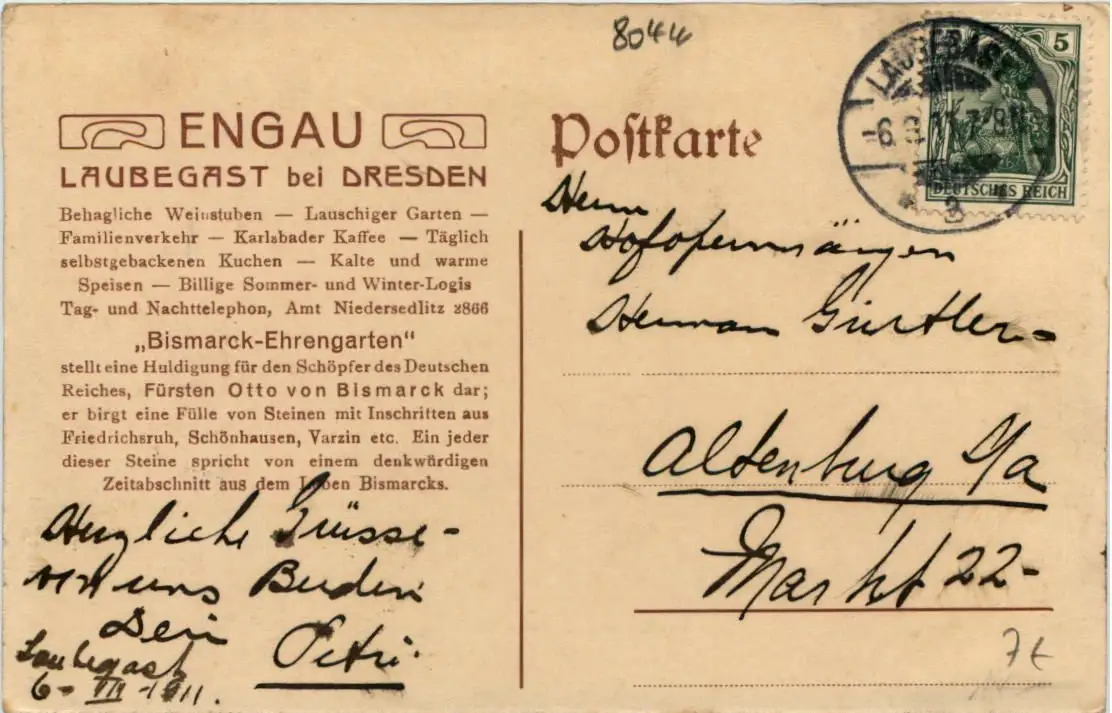 8044
ENGAU
LAUBEGAST bei DRESDEN
Behagliche Weinstuben — Lauschiger Garten —
Familienverkehr — Karlsbader Kaffee — Täglich
selbstgebackenen Kuchen — Kalte und warme
Speisen — Billige Sommer- und Winter-Logis
Tag- und Nachttelephon, Amt Niedersedlitz 2866
„Bismarck-Ehrengarten“
stellt eine Huldigung für den Schöpfer des Deutschen
Reiches, Fürsten Otto von Bismarck dar;
er birgt eine Fülle von Steinen mit Inschriften aus
Friedrichsruh, Schönhausen, Varzin etc. Ein jeder
dieser Steine spricht von einem denkwürdigen
Zeitabschnitt aus dem Leben Bismarcks.
Herzliche Grüsse-
von uns Beiden
Dein
Petri
Laubegast
6- VII -1911.
Poſtkarte
LAUBEGAST
5
DEUTSCHES REICH
Herrn
Hofopernsänger
Herman Gürtler-
Altenburg S/a
Markt 22-
7€